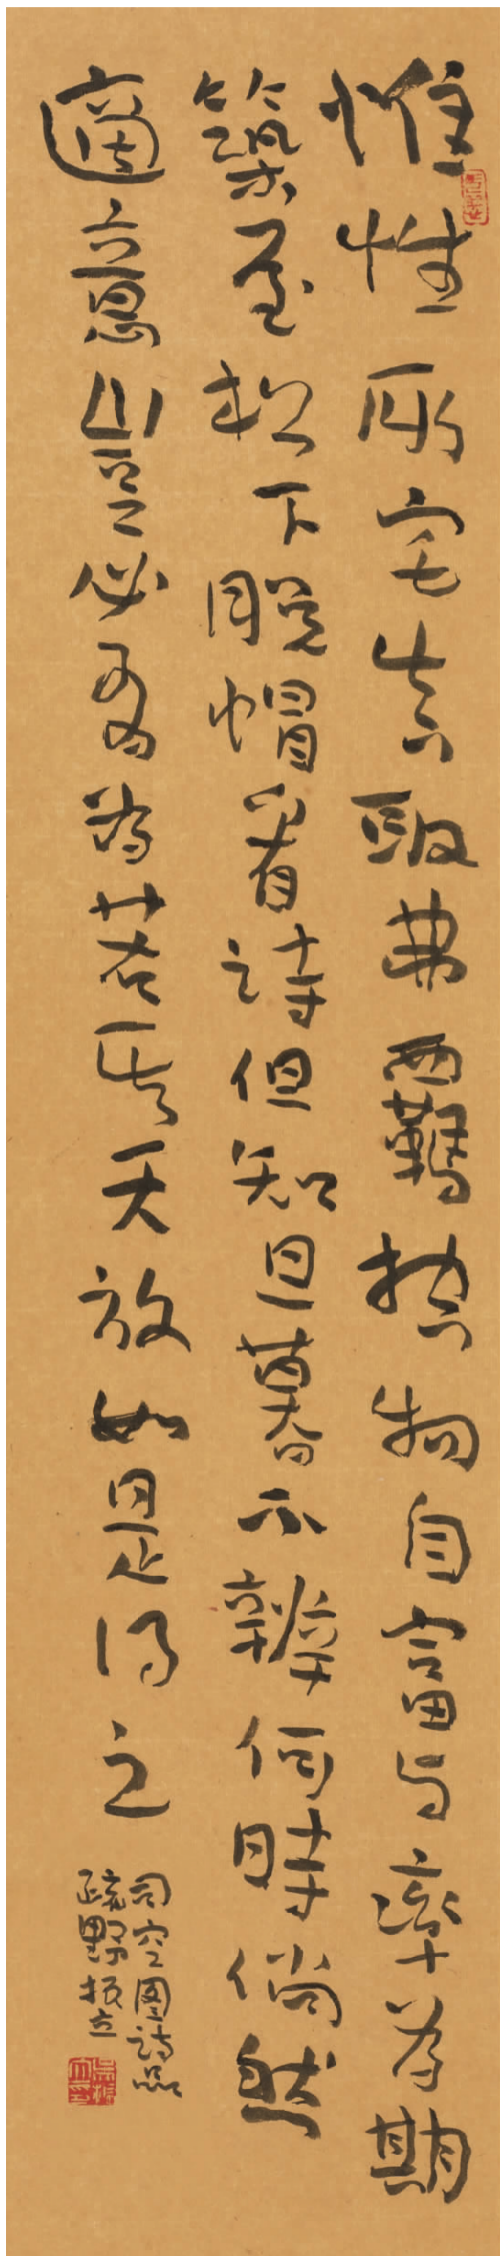 惟性所宅真取弗覊控物自富与率為期
築屋松下脱帽看詩但知旦暮不辨何時倘然
適意豈必有為若其天放如是得之
司空图詩品
疏野振立